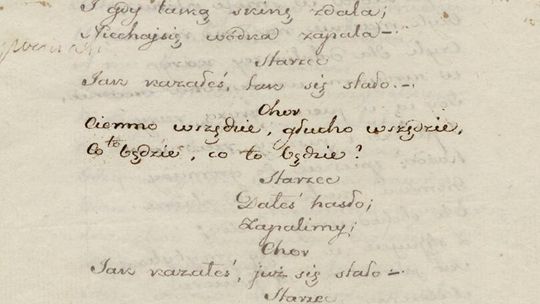 I gdy laską skinę zdala;
Niechaj się wódka zapala –.
Starzec
Jak kazałeś, tak się stało. –.
Chor
Ciemno wszędzie, głucho wszędzie,
Co to będzie, co to będzie?
Starzec
Dałeś hasło;
Zapalimy;
Chor
Jak kazałeś, już się stało –.
Starzec